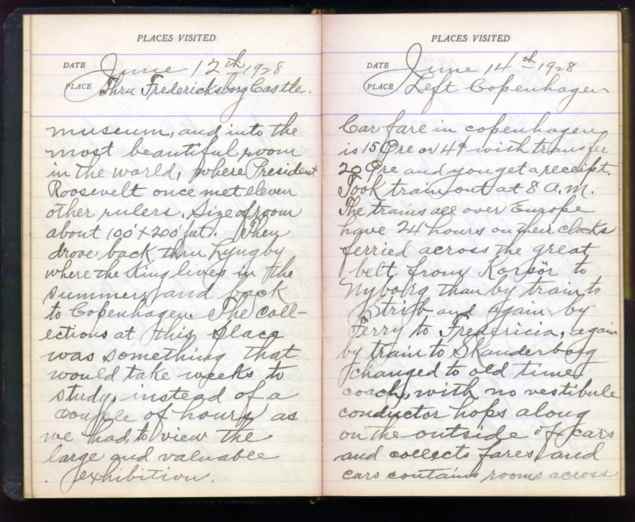 PLACES VISITED
DATE June 12th 1928
PLACE Thru Fredericksborg Castle.
museum, and into the
most beautiful room
in the world, where President
Roosevelt once met eleven
other rulers. Size of room
about 100' x 200 feet. Then
drove back thru Lyngby
where the King lives in the
summer, and back
to Copenhagen. The coll-
ections at this place
was something that
would take weeks to
study, instead of a
couple of hours as
we had to view the
large and valuable
exhibition.
PLACES VISITED
DATE June 14th 1928
PLACE Left Copenhagen
Car fare in copenhagen
is 15 Ore or 4¢ with transfer
20 Ore and you get a receipt.
Took train out at 8 A.M.
The trains all over Europe
have 24 hours on their clocks
ferried across the great
belt from Korsör to
Nyborg than by train to
Strib and again by
Ferry to Fredericia, again
by train to Skanderborg
changed to old time
coach, with no vestibule
conductor hops along
on the outside of cars
and collects fares, and
cars contains rooms across